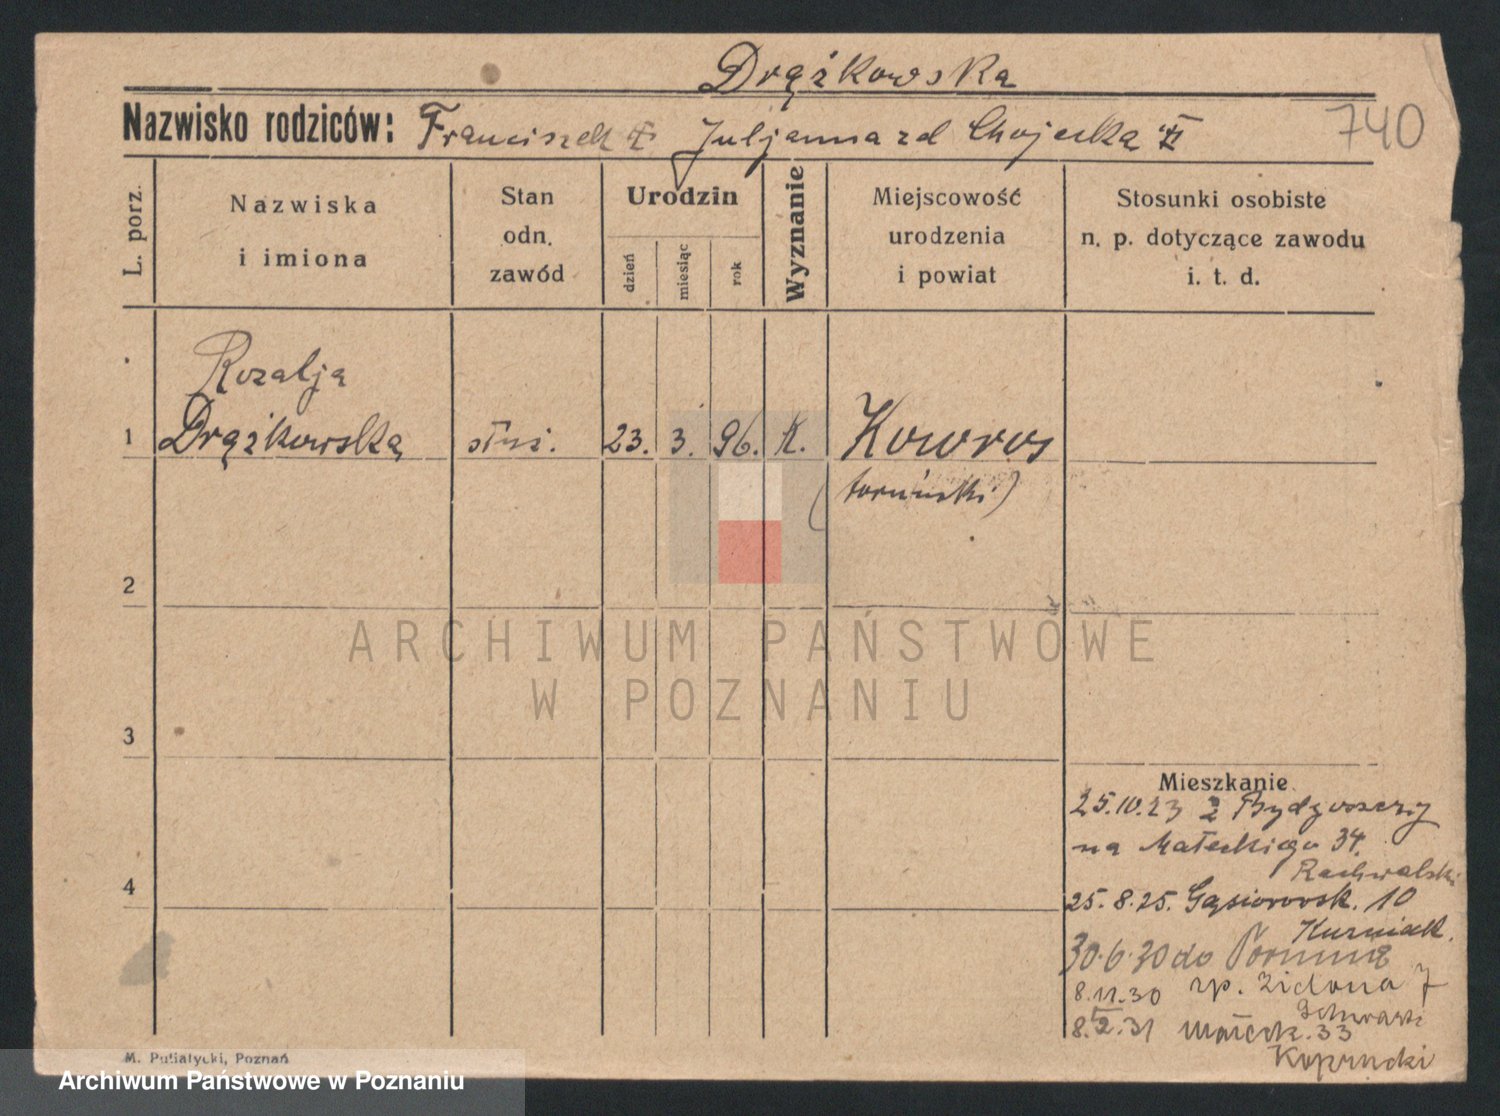 Drążkowska
Nazwisko rodziców: Franciszek Juljanna zd Chojecką
740
L. porz.
Nazwiska
i imiona
Stan
odn.
zawód
Urodzin
dzień
miesiąc
rok
Wyznanie
Miejscowość
urodzenia
i powiat
Stosunki osobiste
n. p. dotyczące zawodu
i. t. d.
Rozalja
1 Drążkowska służ. 23. 3. 96. K. Koworos
(toruński)
2
3
4
ARCHIWUM PAŃSTWOWE
W POZNANIU
Mieszkanie
25.10.23 z Bydgoszczy
na Małeckiego 34.
Rachwalski
25.8.25. Gąsiorowsk. 10
Kuzniak.
30.6.30 do Torunia
8.11.30 zp. Zielona 7
8.2.31 Małeck. 33
M. Putiatycki, Poznań
Archiwum Państwowe w Poznaniu